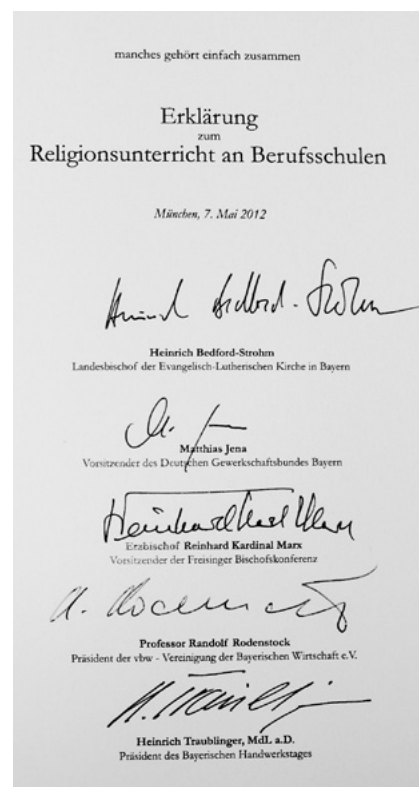 manches gehört einfach zusammen
Erklärung
zum
Religionsunterricht an Berufsschulen
München, 7. Mai 2012
Heinrich Bedford-Strohm
Heinrich Bedford-Strohm
Landesbischof der Evangelisch-Lutherischen Kirche in Bayern
Matthias Jena
Vorsitzender des Deutschen Gewerkschaftsbundes Bayern
Reinhard Kardinal Marx
Erzbischof Reinhard Kardinal Marx
Vorsitzender der Freisinger Bischofskonferenz
Professor Randolf Rodenstock
Präsident der vbw - Vereinigung der Bayerischen Wirtschaft e.V.
Heinrich Traublinger, MdL a.D.
Präsident des Bayerischen Handwerkstages